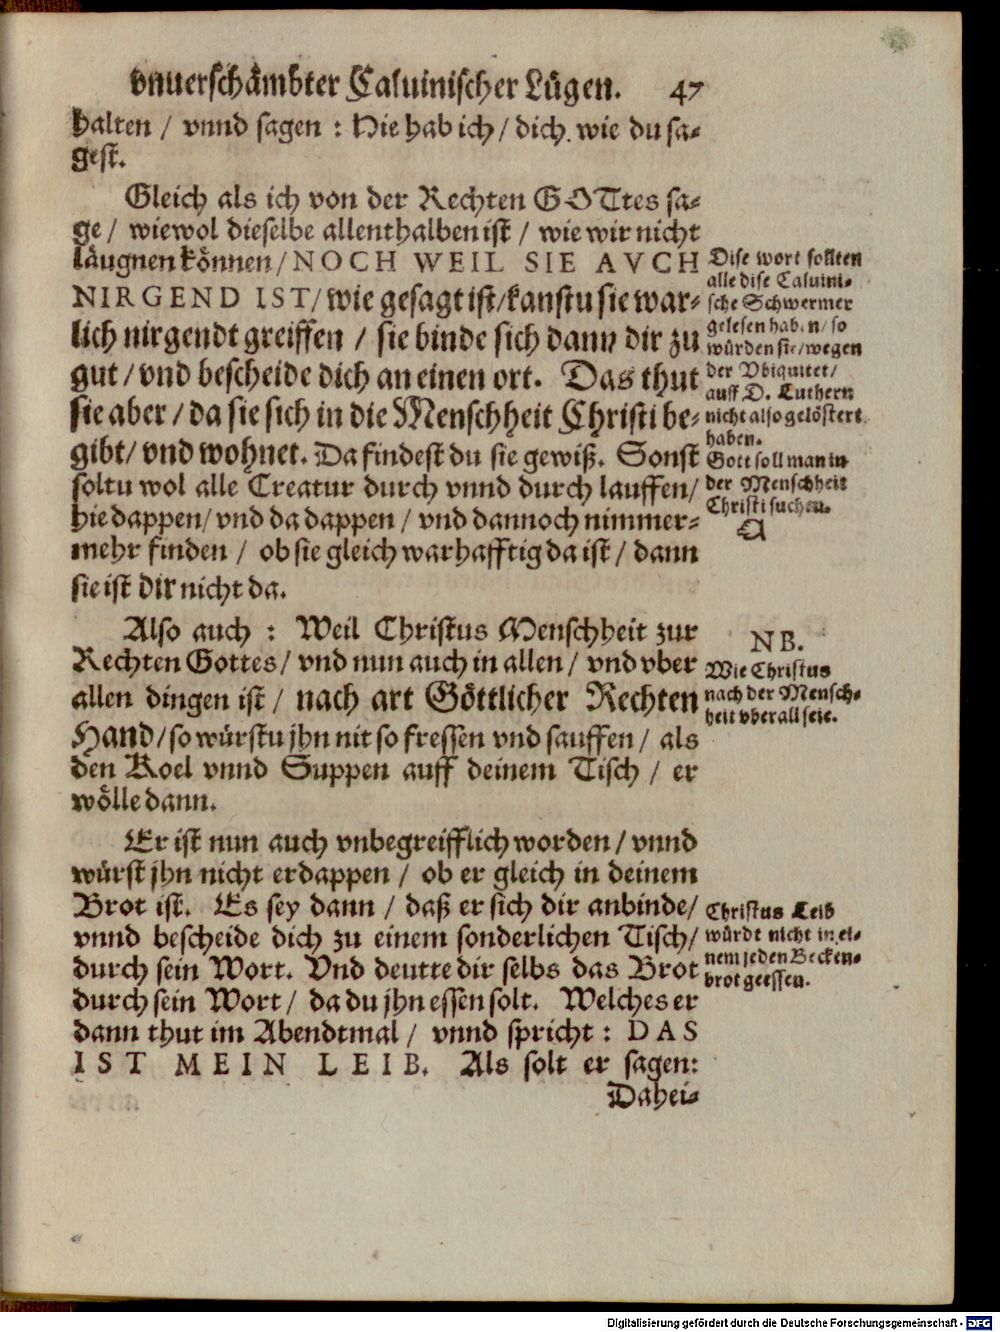 vnuerschämbter Caluinischer Lügen. 47
halten / vnnd sagen : Hie hab ich / dich. wie du sa-
gest.
Gleich als ich von der Rechten GOTtes sa-
ge / wiewol dieselbe allenthalben ist / wie wir nicht
läugnen können / NOCH WEIL SIE AVCH
NIRGEND IST / wie gesagt ist / kanstu sie war-
lich nirgendt greiffen / sie binde sich dann dir zu
gut / vnd bescheide dich an einen ort. Das thut
sie aber / da sie sich in die Menschheit Christi be-
gibt / vnd wohnet. Da findest du sie gewiß. Sonst
soltu wol alle Creatur durch vnnd durch lauffen /
hie dappen / vnd da dappen / vnd dannoch nimmer-
mehr finden / ob sie gleich warhafftig da ist / dann
sie ist dir nicht da.
Dise wort sollten
alle dise Caluini-
sche Schwermer
gelesen haben / so
würden sie / wegen
der Vbiquitet /
auff D. Luthern
nicht also gelöstert
haben.
Gott soll man in
der Menschheit
Christi suchen.
Also auch : Weil Christus Menschheit zur
Rechten Gottes / vnd nun auch in allen / vnd vber
allen dingen ist / nach art Göttlicher Rechten
Hand / so würstu jhn nit so fressen vnd sauffen / als
den Koel vnnd Suppen auff deinem Tisch / er
wölle dann.
NB.
Wie Christus
nach der Mensch-
heit vberall seie.
Er ist nun auch vnbegreifflich worden / vnnd
würst jhn nicht erdappen / ob er gleich in deinem
Brot ist. Es sey dann / daß er sich dir anbinde /
vnnd bescheide dich zu einem sonderlichen Tisch /
durch sein Wort. Vnd deutte dir selbs das Brot
durch sein Wort / da du jhn essen solt. Welches er
dann thut im Abendtmal / vnnd spricht : DAS
IST MEIN LEIB. Als solt er sagen:
Christus Leib
würdt nicht in ei-
nem jeden Becken-
brot geessen.
Dahei-
Digitalisierung gefördert durch die Deutsche Forschungsgemeinschaft - DFG